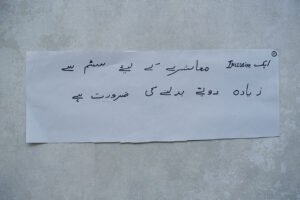 ایک معاشرے کے لیے سسٹم سے
زیادہ رویے بدلنے کی ضرورت ہے